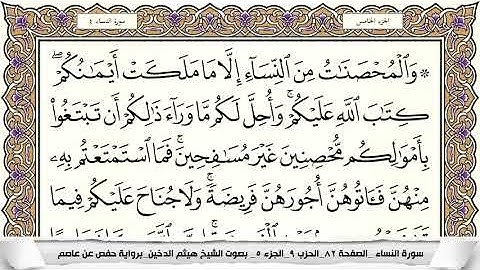 الجزء الخامس
سورة النساء ٤
۞ وَالْمُحْصَنَاتُ مِنَ النِّسَاءِ إِلَّا مَا مَلَكَتْ أَيْمَانُكُمْ ۖ
كِتَابَ اللَّهِ عَلَيْكُمْ ۚ وَأُحِلَّ لَكُم مَّا وَرَاءَ ذَٰلِكُمْ أَن تَبْتَغُوا
بِأَمْوَالِكُم مُّحْصِنِينَ غَيْرَ مُسَافِحِينَ ۚ فَمَا اسْتَمْتَعْتُم بِهِ
مِنْهُنَّ فَآتُوهُنَّ أُجُورَهُنَّ فَرِيضَةً ۚ وَلَا جُنَاحَ عَلَيْكُمْ فِيمَا
سورة النساء _الصفحة ٨٢_الحزب ٩_الجزء ٥_ بصوت الشيخ هيثم الدخين برواية حفص عن عاصم